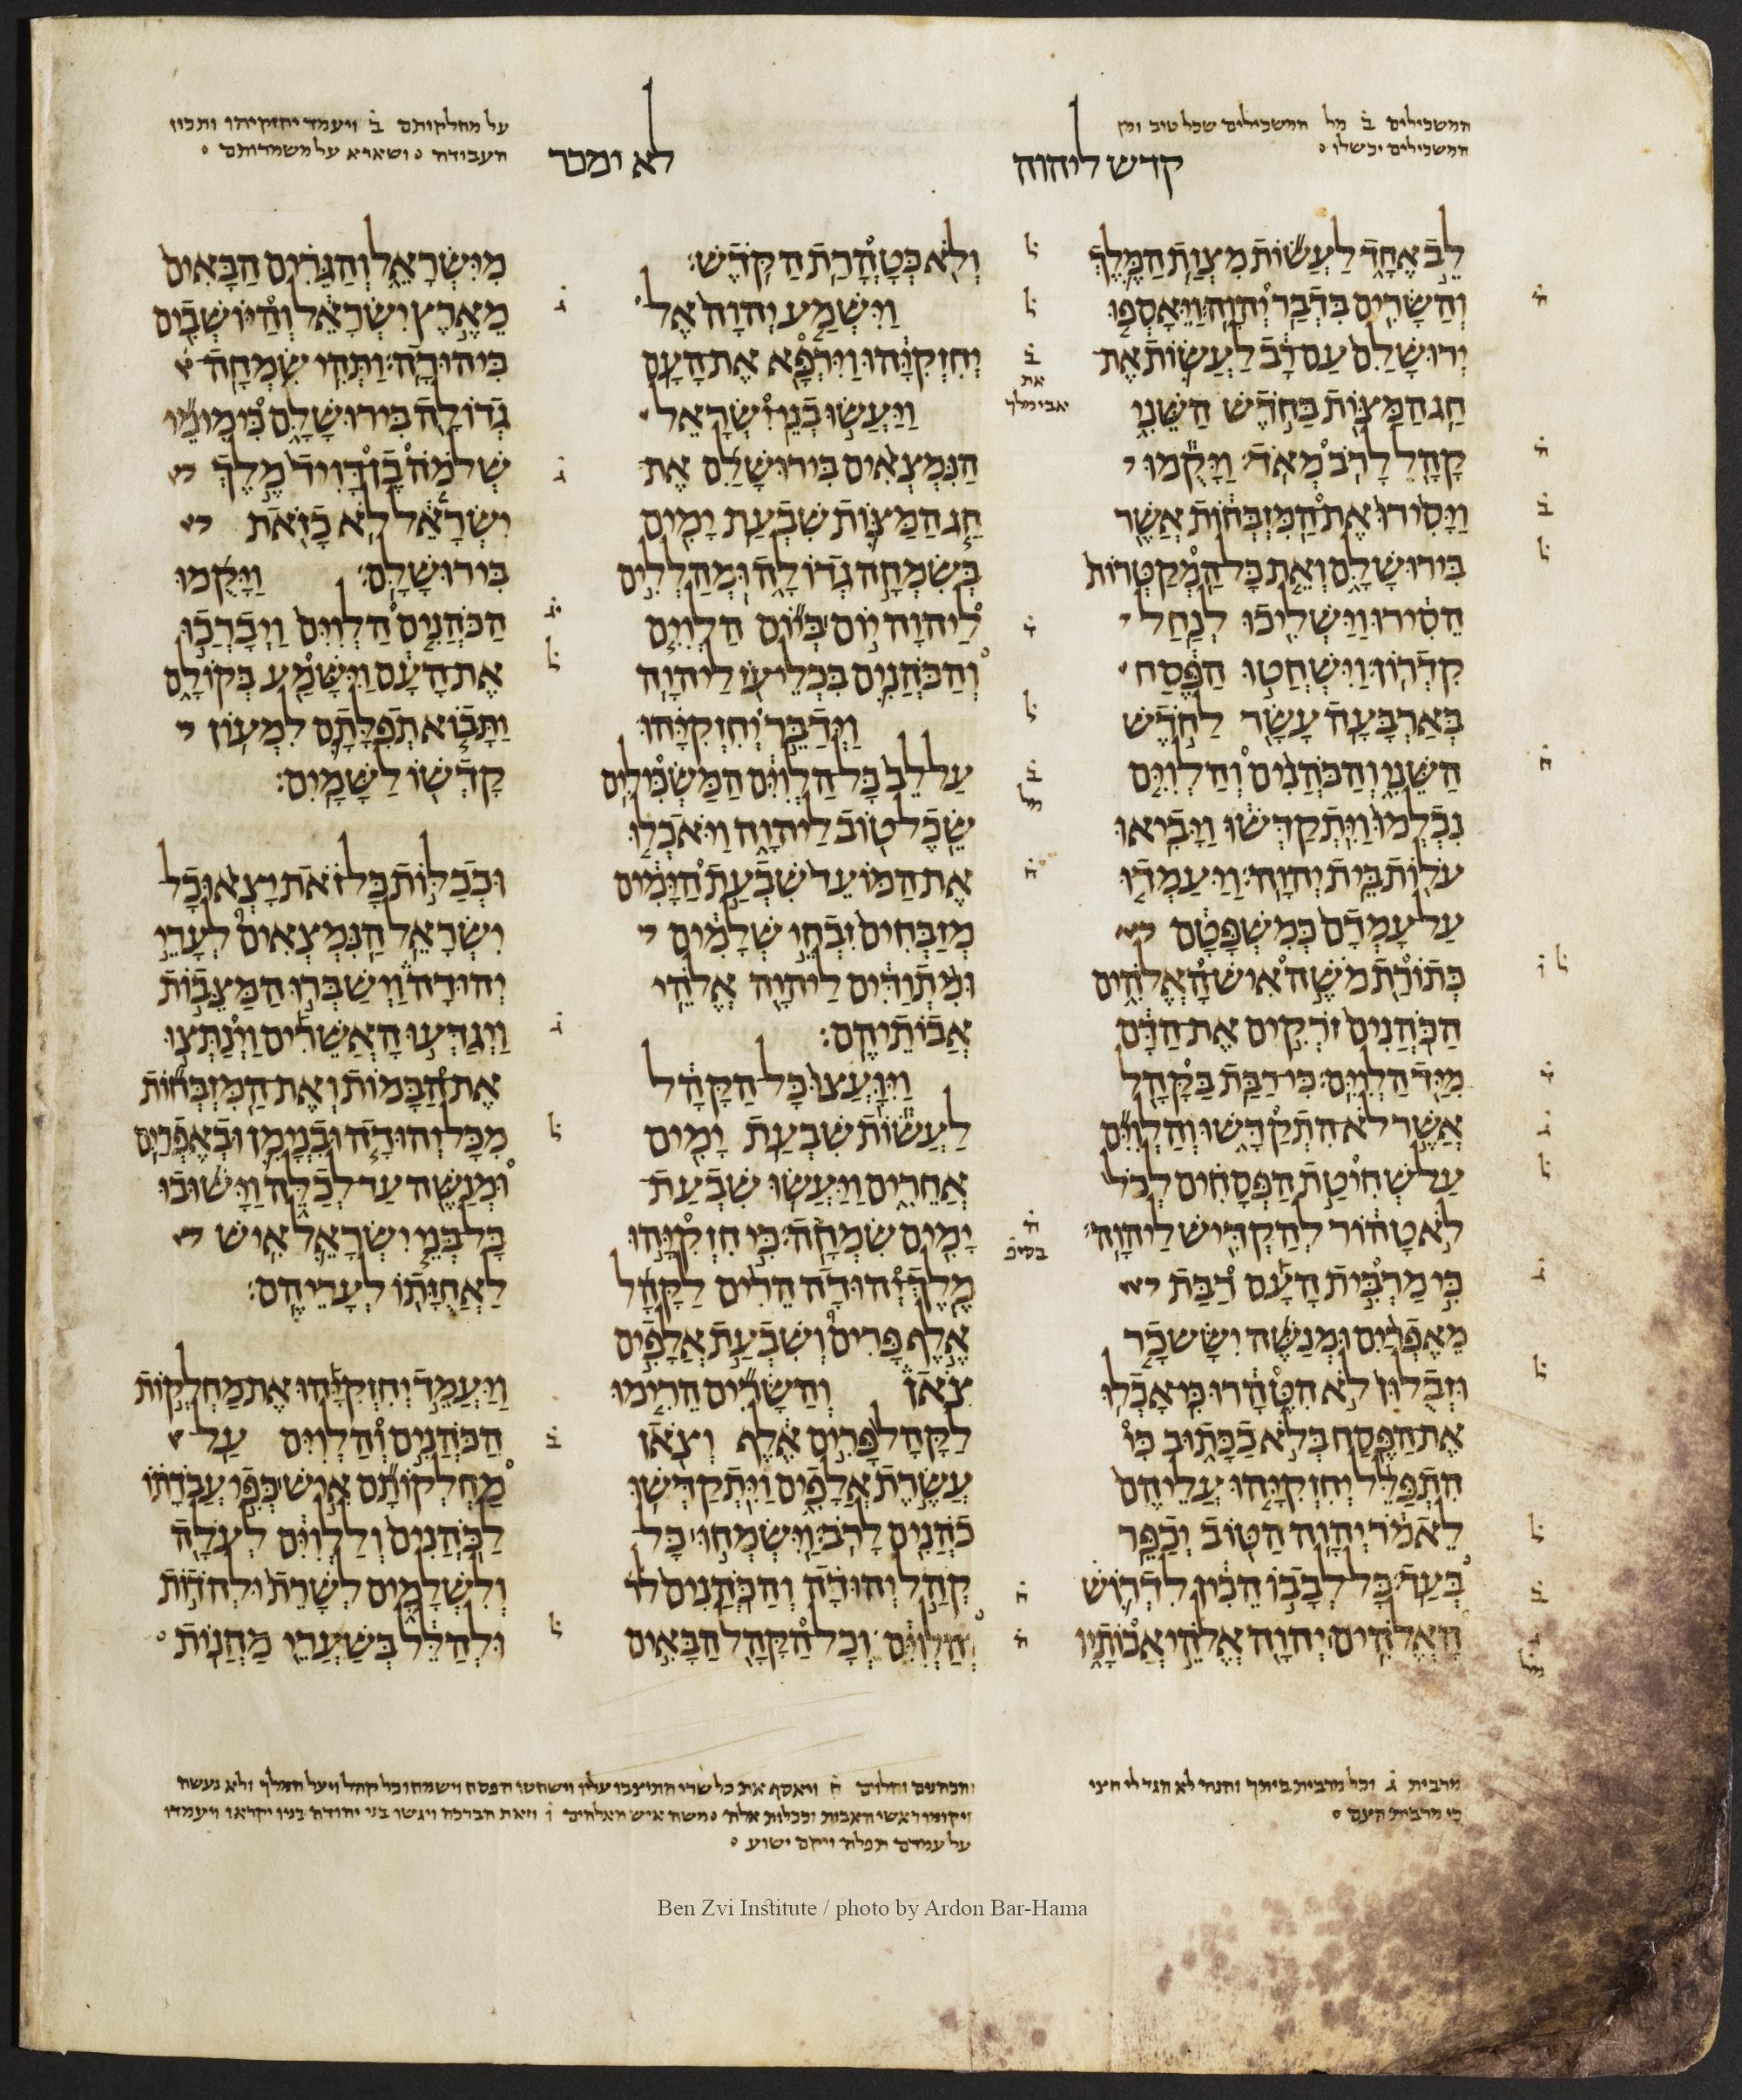 המשכילים ב̇ מל המשכילים שכל טוב ומן
המשכילים יכשלו
קדש ליהוה
לא ימכר
על מחלקותם ב̇ ויעמד יחזקיהו ותכון
העבודה ושארא על משמרותם
לֵב אֶחָד לַעֲשׂוֹת מִצְוַת הַמֶּלֶךְ
וְהַשָּׂרִים בִּדְבַר יְהוָה׃ וַיֵּאָסְפוּ
יְרוּשָׁלִַם עַם רָב לַעֲשׂוֹת אֶת
חַג הַמַּצּוֹת בַּחֹדֶשׁ הַשֵּׁנִי
קָהָל לָרֹב מְאֹד׃ וַיָּקֻמוּ
וַיָּסִירוּ אֶת הַמִּזְבְּחוֹת אֲשֶׁר
בִּירוּשָׁלִָם וְאֵת כָּל הַמְקַטְּרוֹת
הֵסִירוּ וַיַּשְׁלִיכוּ לְנַחַל
קִדְרוֹן׃ וַיִּשְׁחֲטוּ הַפֶּסַח
בְּאַרְבָּעָה עָשָׂר לַחֹדֶשׁ
הַשֵּׁנִי וְהַכֹּהֲנִים וְהַלְוִיִּם
נִכְלְמוּ וַיִּתְקַדְּשׁוּ וַיָּבִיאוּ
עֹלוֹת בֵּית יְהוָה׃ וַיַּעַמְדוּ
עַל עָמְדָם כְּמִשְׁפָּטָם
כְּתוֹרַת מֹשֶׁה אִישׁ הָאֱלֹהִים
הַכֹּהֲנִים זֹרְקִים אֶת הַדָּם
מִיַּד הַלְוִיִּם׃ כִּי רַבַּת בַּקָּהָל
אֲשֶׁר לֹא הִתְקַדָּשׁוּ וְהַלְוִיִּם
עַל שְׁחִיטַת הַפְּסָחִים לְכֹל
לֹא טָהוֹר לְהַקְדִּישׁ לַיהוָה׃
כִּי מַרְבִּית הָעָם רַבַּת
מֵאֶפְרַיִם וּמְנַשֶּׁה יִשָּׂשכָר
וּזְבֻלוּן לֹא הִטֶּהָרוּ כִּי אָכְלוּ
אֶת הַפֶּסַח בְּלֹא כַכָּתוּב כִּי
הִתְפַּלֵּל יְחִזְקִיָּהוּ עֲלֵיהֶם
לֵאמֹר יְהוָה הַטּוֹב יְכַפֵּר
בְּעַד׃ כָּל לְבָבוֹ הֵכִין לִדְרוֹשׁ
הָאֱלֹהִים יְהוָה אֱלֹהֵי אֲבוֹתָיו
את
אבימלך
וְלֹא כְּטָהֳרַת הַקֹּדֶשׁ׃
וַיִּשְׁמַע יְהוָה אֶל
יְחִזְקִיָּהוּ וַיִּרְפָּא אֶת הָעָם
וַיַּעֲשׂוּ בְנֵי יִשְׂרָאֵל
הַנִּמְצְאִים בִּירוּשָׁלִַם אֶת
חַג הַמַּצּוֹת שִׁבְעַת יָמִים
בְּשִׂמְחָה גְדוֹלָה וּמְהַלְלִים
לַיהוָה יוֹם בְּיוֹם הַלְוִיִּם
וְהַכֹּהֲנִים בִּכְלֵי עֹז לַיהוָה
וַיְדַבֵּר יְחִזְקִיָּהוּ
עַל לֵב כָּל הַלְוִיִּם הַמַּשְׂכִּילִים
שֵׂכֶל טוֹב לַיהוָה וַיֹּאכְלוּ
אֶת הַמּוֹעֵד שִׁבְעַת הַיָּמִים
מְזַבְּחִים זִבְחֵי שְׁלָמִים
וּמִתְוַדִּים לַיהוָה אֱלֹהֵי
אֲבוֹתֵיהֶם׃
וַיִּוָּעֲצוּ כָּל הַקָּהָל
לַעֲשׂוֹת שִׁבְעַת יָמִים
אֲחֵרִים וַיַּעֲשׂוּ שִׁבְעַת
יָמִים שִׂמְחָה׃ כִּי חִזְקִיָּהוּ
מֶלֶךְ יְהוּדָה הֵרִים לַקָּהָל
אֶלֶף פָּרִים וְשִׁבְעַת אֲלָפִים
צֹאן וְהַשָּׂרִים הֵרִימוּ
לַקָּהָל פָּרִים אֶלֶף וְצֹאן
עֲשֶׂרֶת אֲלָפִים וַיִּתְקַדְּשׁוּ
כֹהֲנִים לָרֹב׃ וַיִּשְׂמְחוּ כָּל
קְהַל יְהוּדָה וְהַכֹּהֲנִים
וְהַלְוִיִּם וְכָל הַקָּהָל הַבָּאִים
מִיִּשְׂרָאֵל וְהַגֵּרִים הַבָּאִים
מֵאֶרֶץ יִשְׂרָאֵל וְהַיּוֹשְׁבִים
בִּיהוּדָה׃ וַתְּהִי שִׂמְחָה
גְדוֹלָה בִּירוּשָׁלִָם כִּי מִימֵי
שְׁלֹמֹה בֶן דָּוִיד מֶלֶךְ
יִשְׂרָאֵל לֹא כָזֹאת
בִּירוּשָׁלִָם׃ וַיָּקֻמוּ
הַכֹּהֲנִים הַלְוִיִּם וַיְבָרְכוּ
אֶת הָעָם וַיִּשָּׁמַע בְּקוֹלָם
וַתָּבוֹא תְפִלָּתָם לִמְעוֹן
קָדְשׁוֹ לַשָּׁמָיִם׃
וּכְכַלּוֹת כָּל זֹאת יָצְאוּ כָּל
יִשְׂרָאֵל הַנִּמְצְאִים לְעָרֵי
יְהוּדָה וַיְשַׁבְּרוּ הַמַּצֵּבוֹת
וַיְגַדְּעוּ הָאֲשֵׁרִים וַיְנַתְּצוּ
אֶת הַבָּמוֹת וְאֶת הַמִּזְבְּחוֹת
מִכָּל יְהוּדָה וּבִנְיָמִן וּבְאֶפְרַיִם
וּמְנַשֶּׁה עַד לְכַלֵּה וַיָּשׁוּבוּ
כָּל בְּנֵי יִשְׂרָאֵל אִישׁ
לַאֲחֻזָּתוֹ לְעָרֵיהֶם׃
וַיַּעֲמֵד יְחִזְקִיָּהוּ אֶת מַחְלְקוֹת
הַכֹּהֲנִים וְהַלְוִיִּם עַל
מַחְלְקוֹתָם אִישׁ כְּפִי עֲבֹדָתוֹ
לַכֹּהֲנִים וְלַלְוִיִּם לְעֹלָה
וְלִשְׁלָמִים לְשָׁרֵת וּלְהֹדוֹת
וּלְהַלֵּל בְּשַׁעֲרֵי מַחֲנוֹת
מרבית ג̇ וכל מרבית ביתך והנה לא הגד לי חצי
כי מרבית העם
והכהנים והלוים ח̇ ויאסף את כל שרי התיצבו עליו וישחטו הפסח וישמחו כל קהל ויעל המלך ולא נעשה
ויקומו ראשי האבות וככלות אלה משה איש האלהים ו̇ וזאת הברכה ויגשו בני יהודה בניו יקראו ויעמדו
על עמדם תפלה ויקם ישוע
Ben Zvi Institute / photo by Ardon Bar-Hama